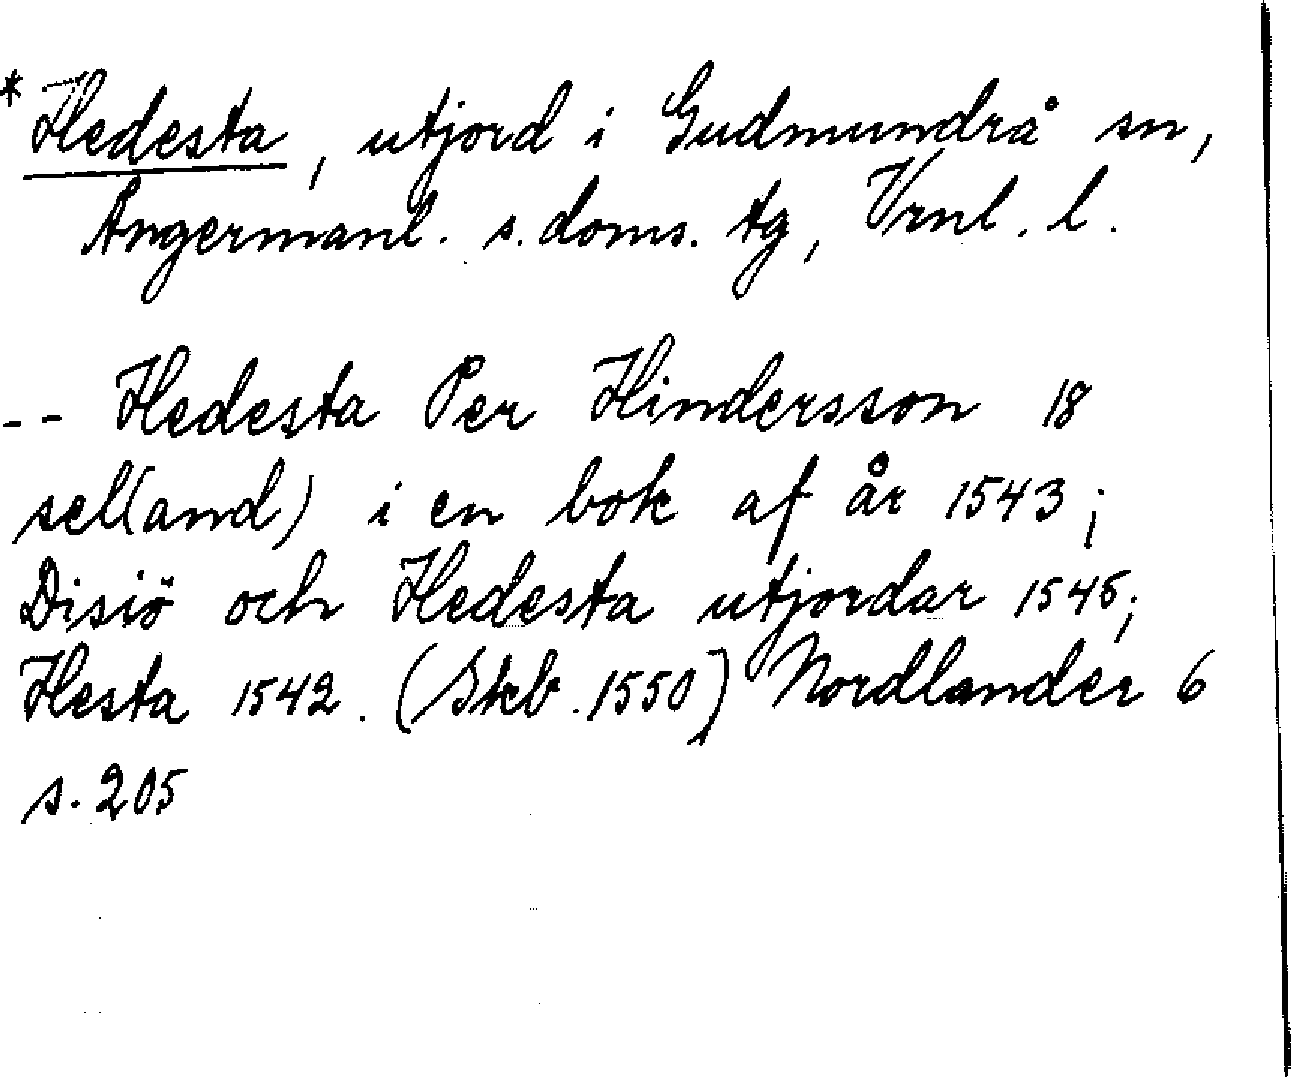 * Hedesta, utjord i Gudmundrå sn,
Ångermanl. s. doms. tg, Vrnl. l.
-- Hedesta Per Hindersson 18
sel(and) i en bok af år 1543;
Disiö och Hedesta utjordar 1545;
Hesta 1542. (Skb. 1550) Nordlander 6
s. 205